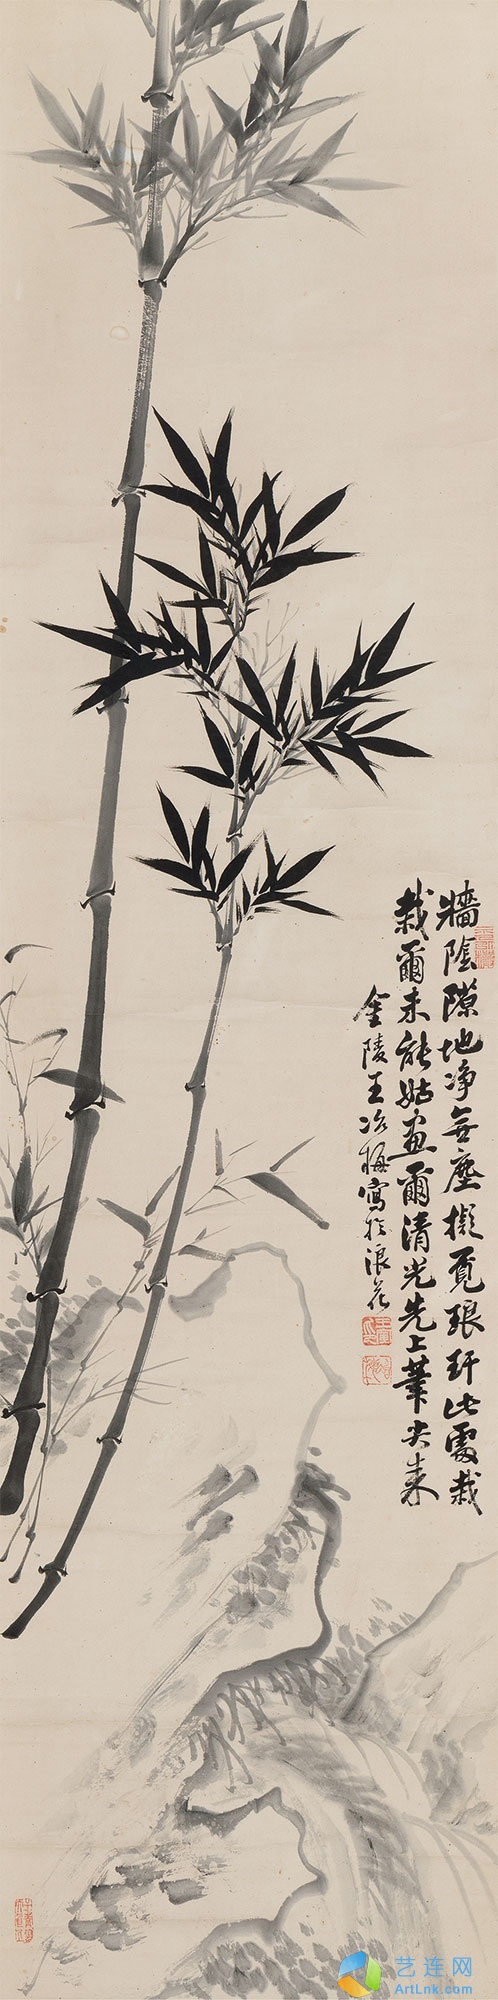 牆陰隙地净無塵擬覓琅玕此處栽
栽爾未能姑畫爾清光先上筆尖來
金陵王冶梅寫於浪花
艺连网
ArtLnk.com